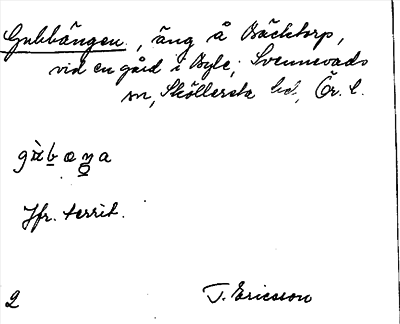 Gubbängen, äng å Bäcktorp,
vid en gård i Byle; Svennevads
sn, Sköllersta hd, Ör. l.
Jfr. territ.
2 T. Ericsson